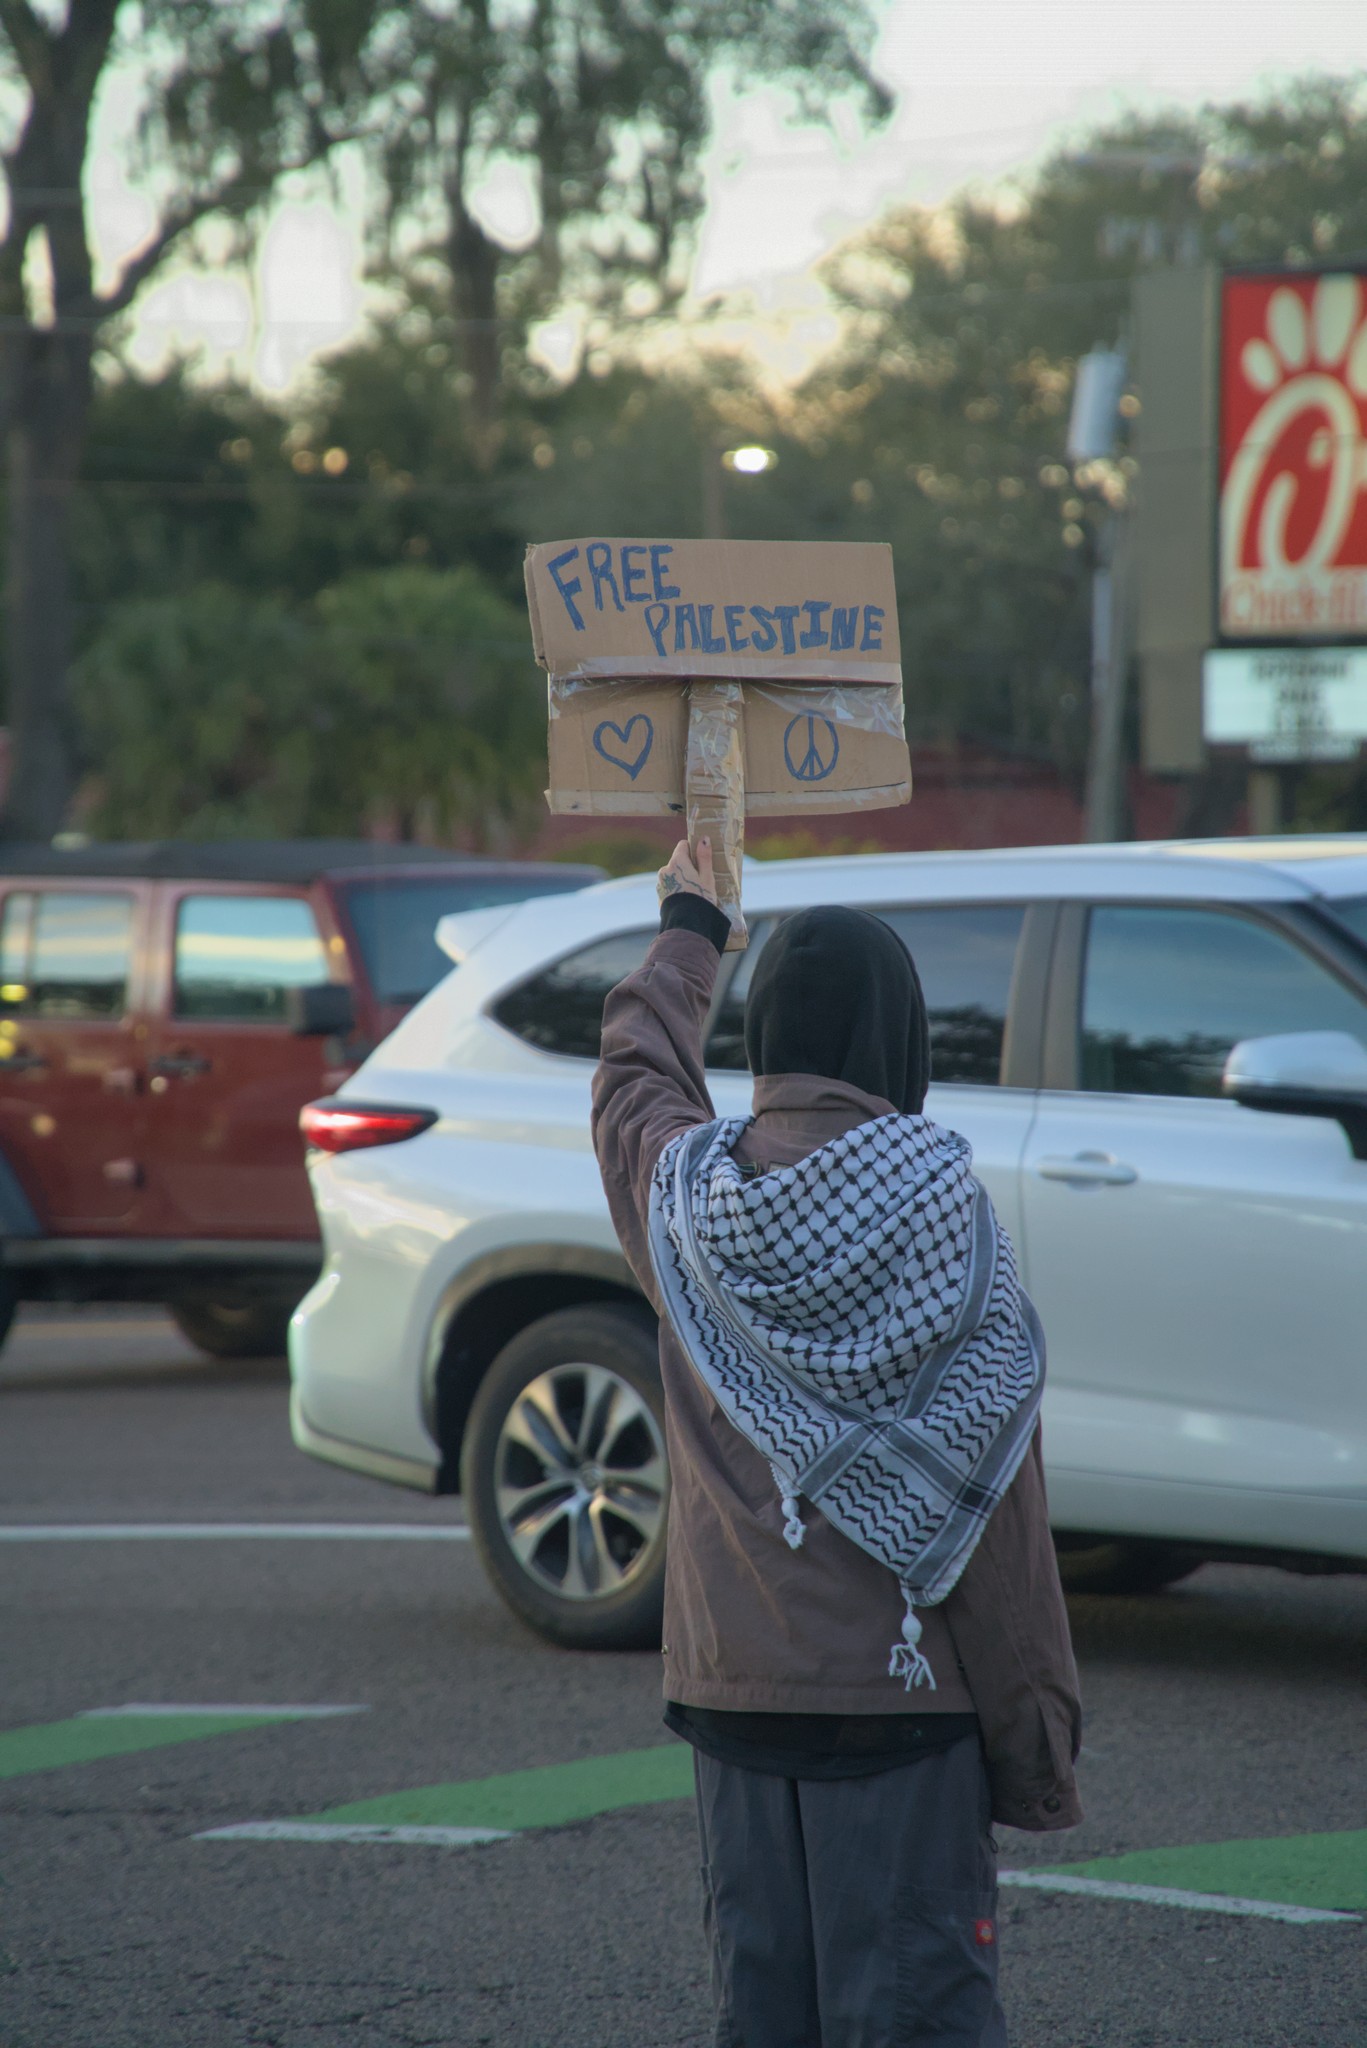 FREE
PALESTINE
Chick-fil